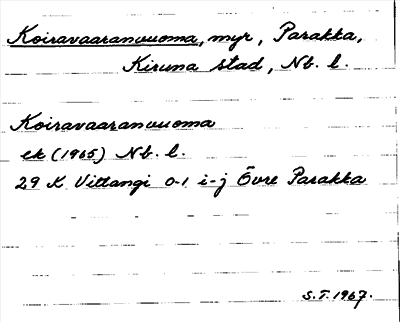 Koiravaaranvuoma, myr, Parakka,
Kiruna stad, Nb. l.
Koiravaaranvuoma
ek (1965) Nb. l.
29 K Vittangi 0-1 i-j Övre Parakka
S.T. 1967.